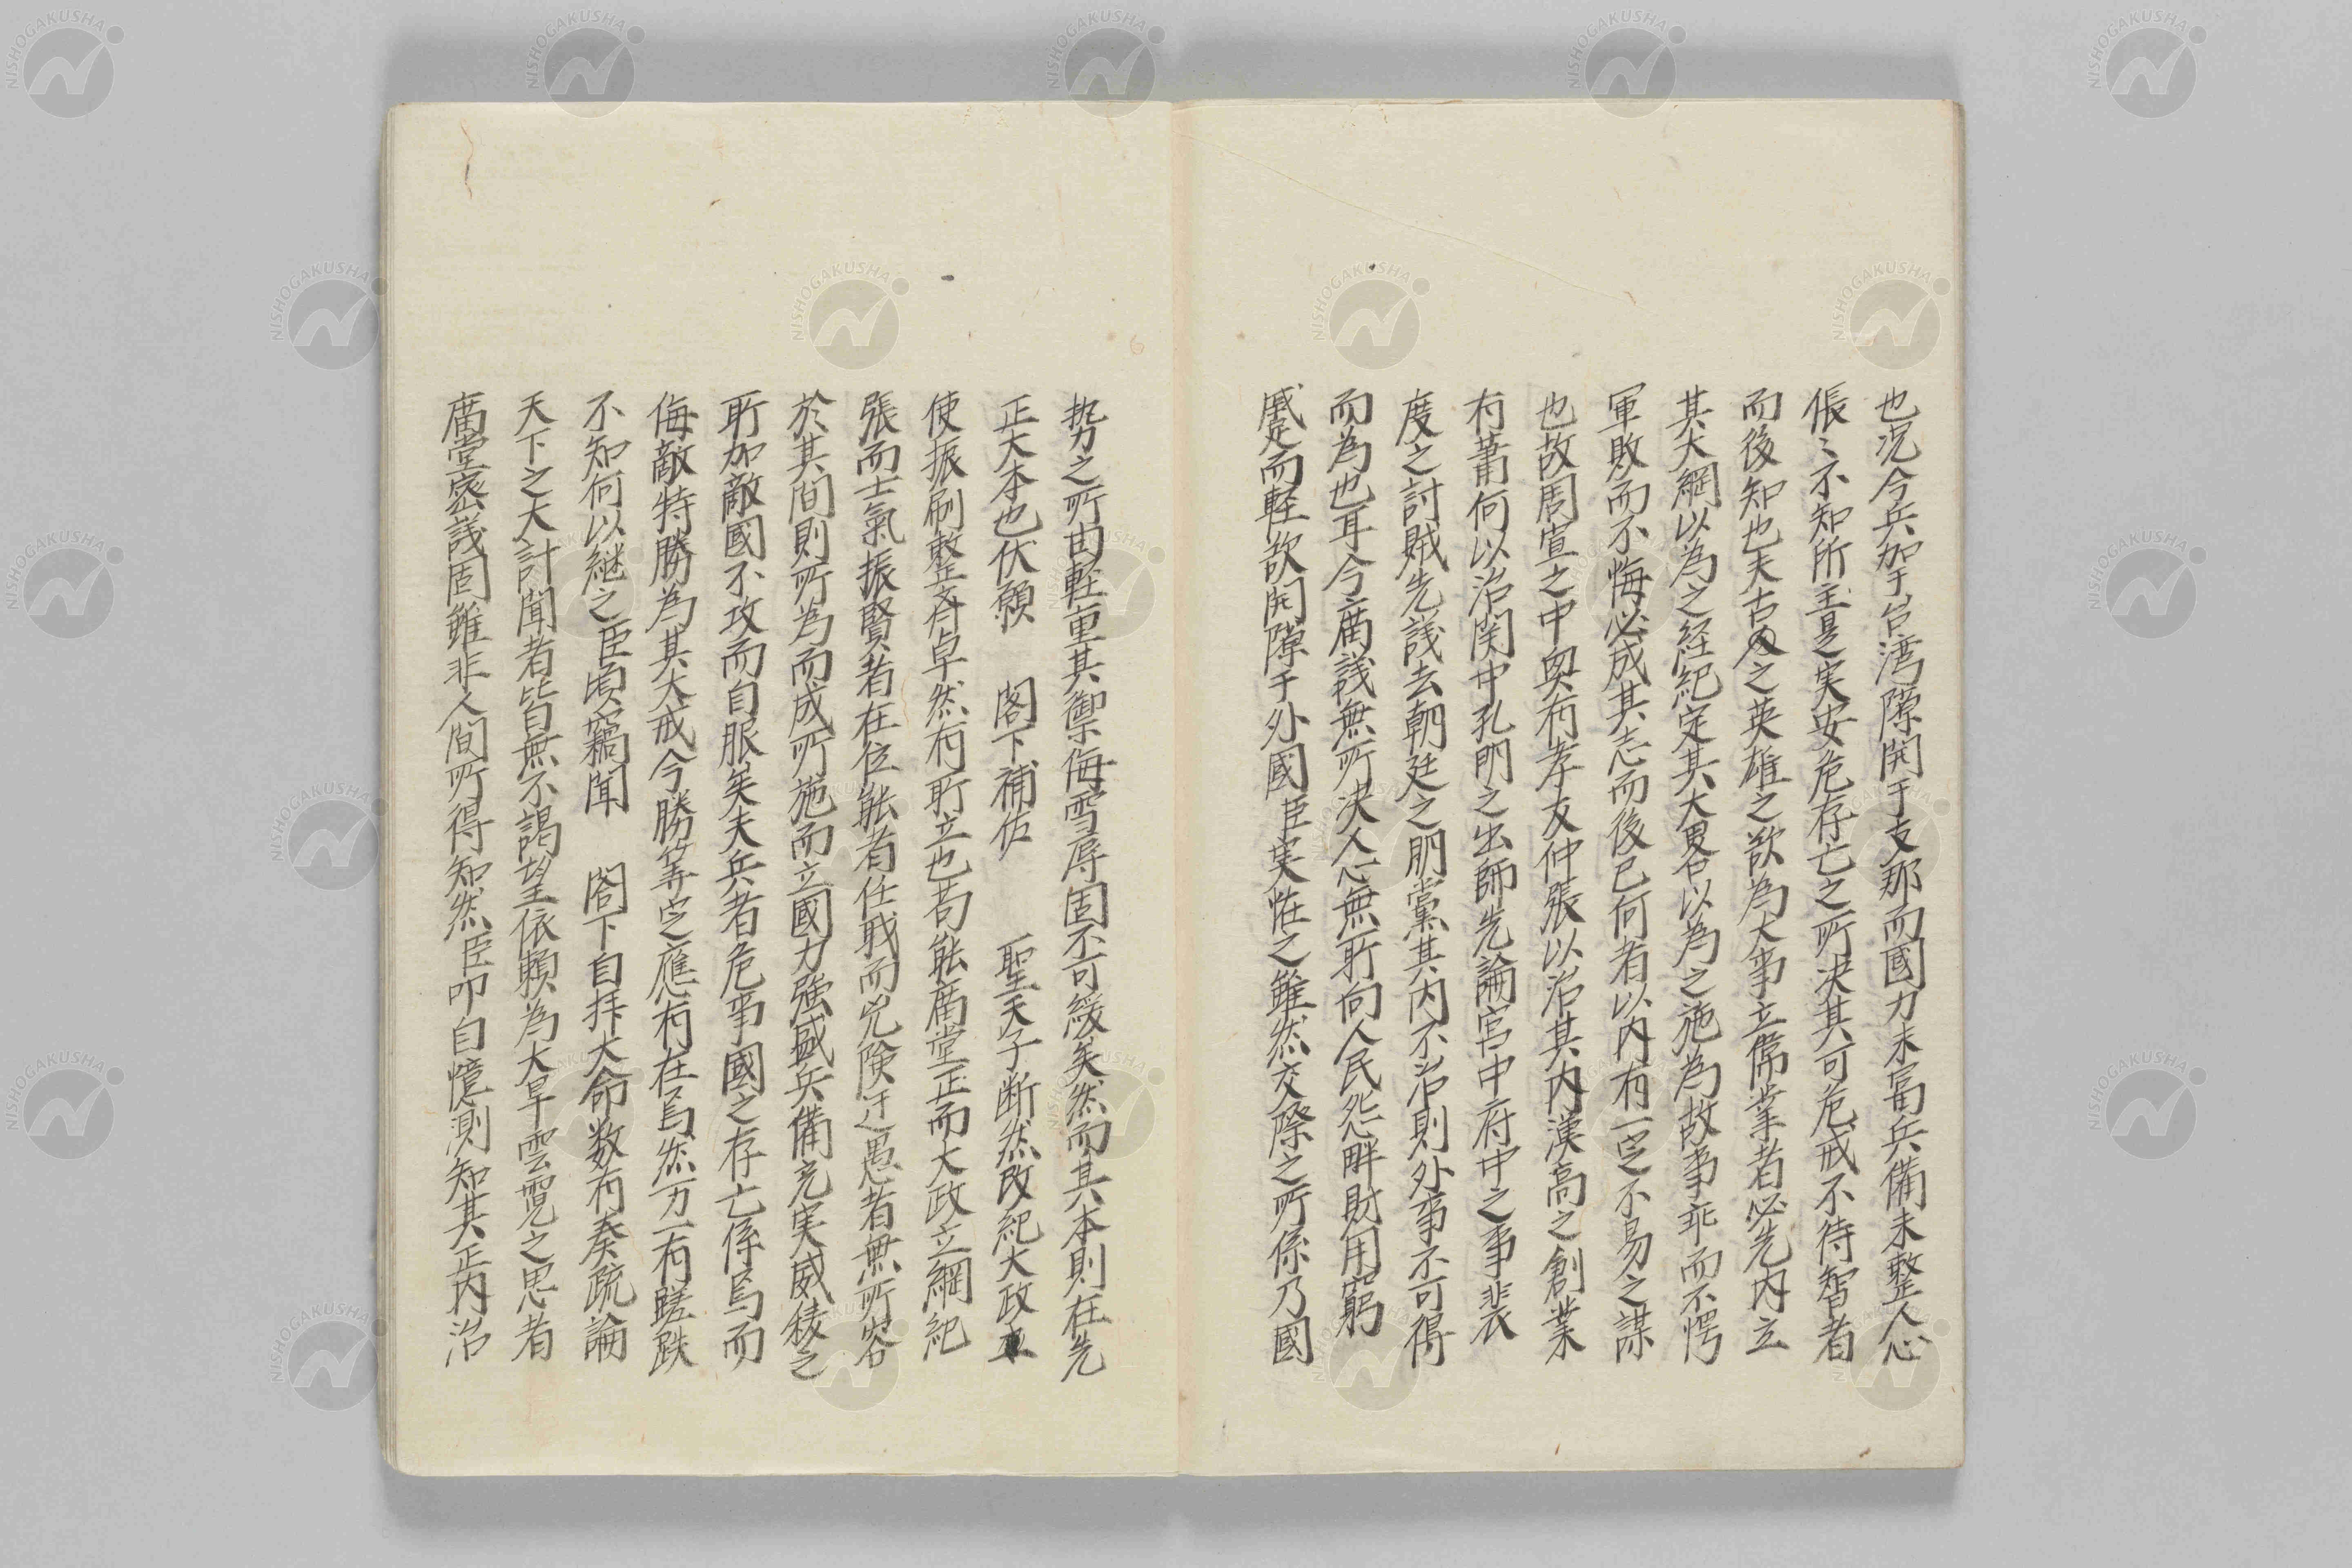 也况今兵加于台湾隙開于支那而國力未富兵備未整人心
倀〻不知所主是実安危存亡之所决其可危戒不待智者
而後知也夫古之英雄之欲為大事立偉業者必先内立
其大綱以為之経紀定其大畧以為之施為故事乖而不愕
軍敗而不悔必成其志而後已何者以内有一定不易之謀
也故周宣之中興有孝友仲張以治其内漢高之創業
有蕭何以治関中孔明之出師先論宮中府中之事裴
度之討賊先議去朝廷之朋黨其内不治則外事不可得
而為也耳今廟議無所决人心無所向人民怨畔財用窮
蹙而軽欲開隙于外國臣実恠之雖然交際之所係乃國
勢之所由軽重其禦侮雪辱固不可緩矣然而其本則在先
正大本也伏願　閣下補佐　聖天子断然改紀大政
使振刷整斉卓然有所立也苟能廟堂正而大政立綱紀
張而士氣振賢者在位能者任戢而兇険迂愚者無所容
於其間則所為而成所施而立國力強盛兵備充実威稜之
所加敵國不攻而自服矣夫兵者危事國之存亡係焉而
侮敵特勝為其大戒今勝筭定應有在焉然万一有蹉跌
不知何以継之臣頃竊聞　閣下自拝大命数有奏疏論
天下之大計聞者皆無不謁望依頼為大旱雲霓之思者
廟堂密議固雖非人間所得知然臣叩自憶測知其正内治
NISHOGAKUSHA